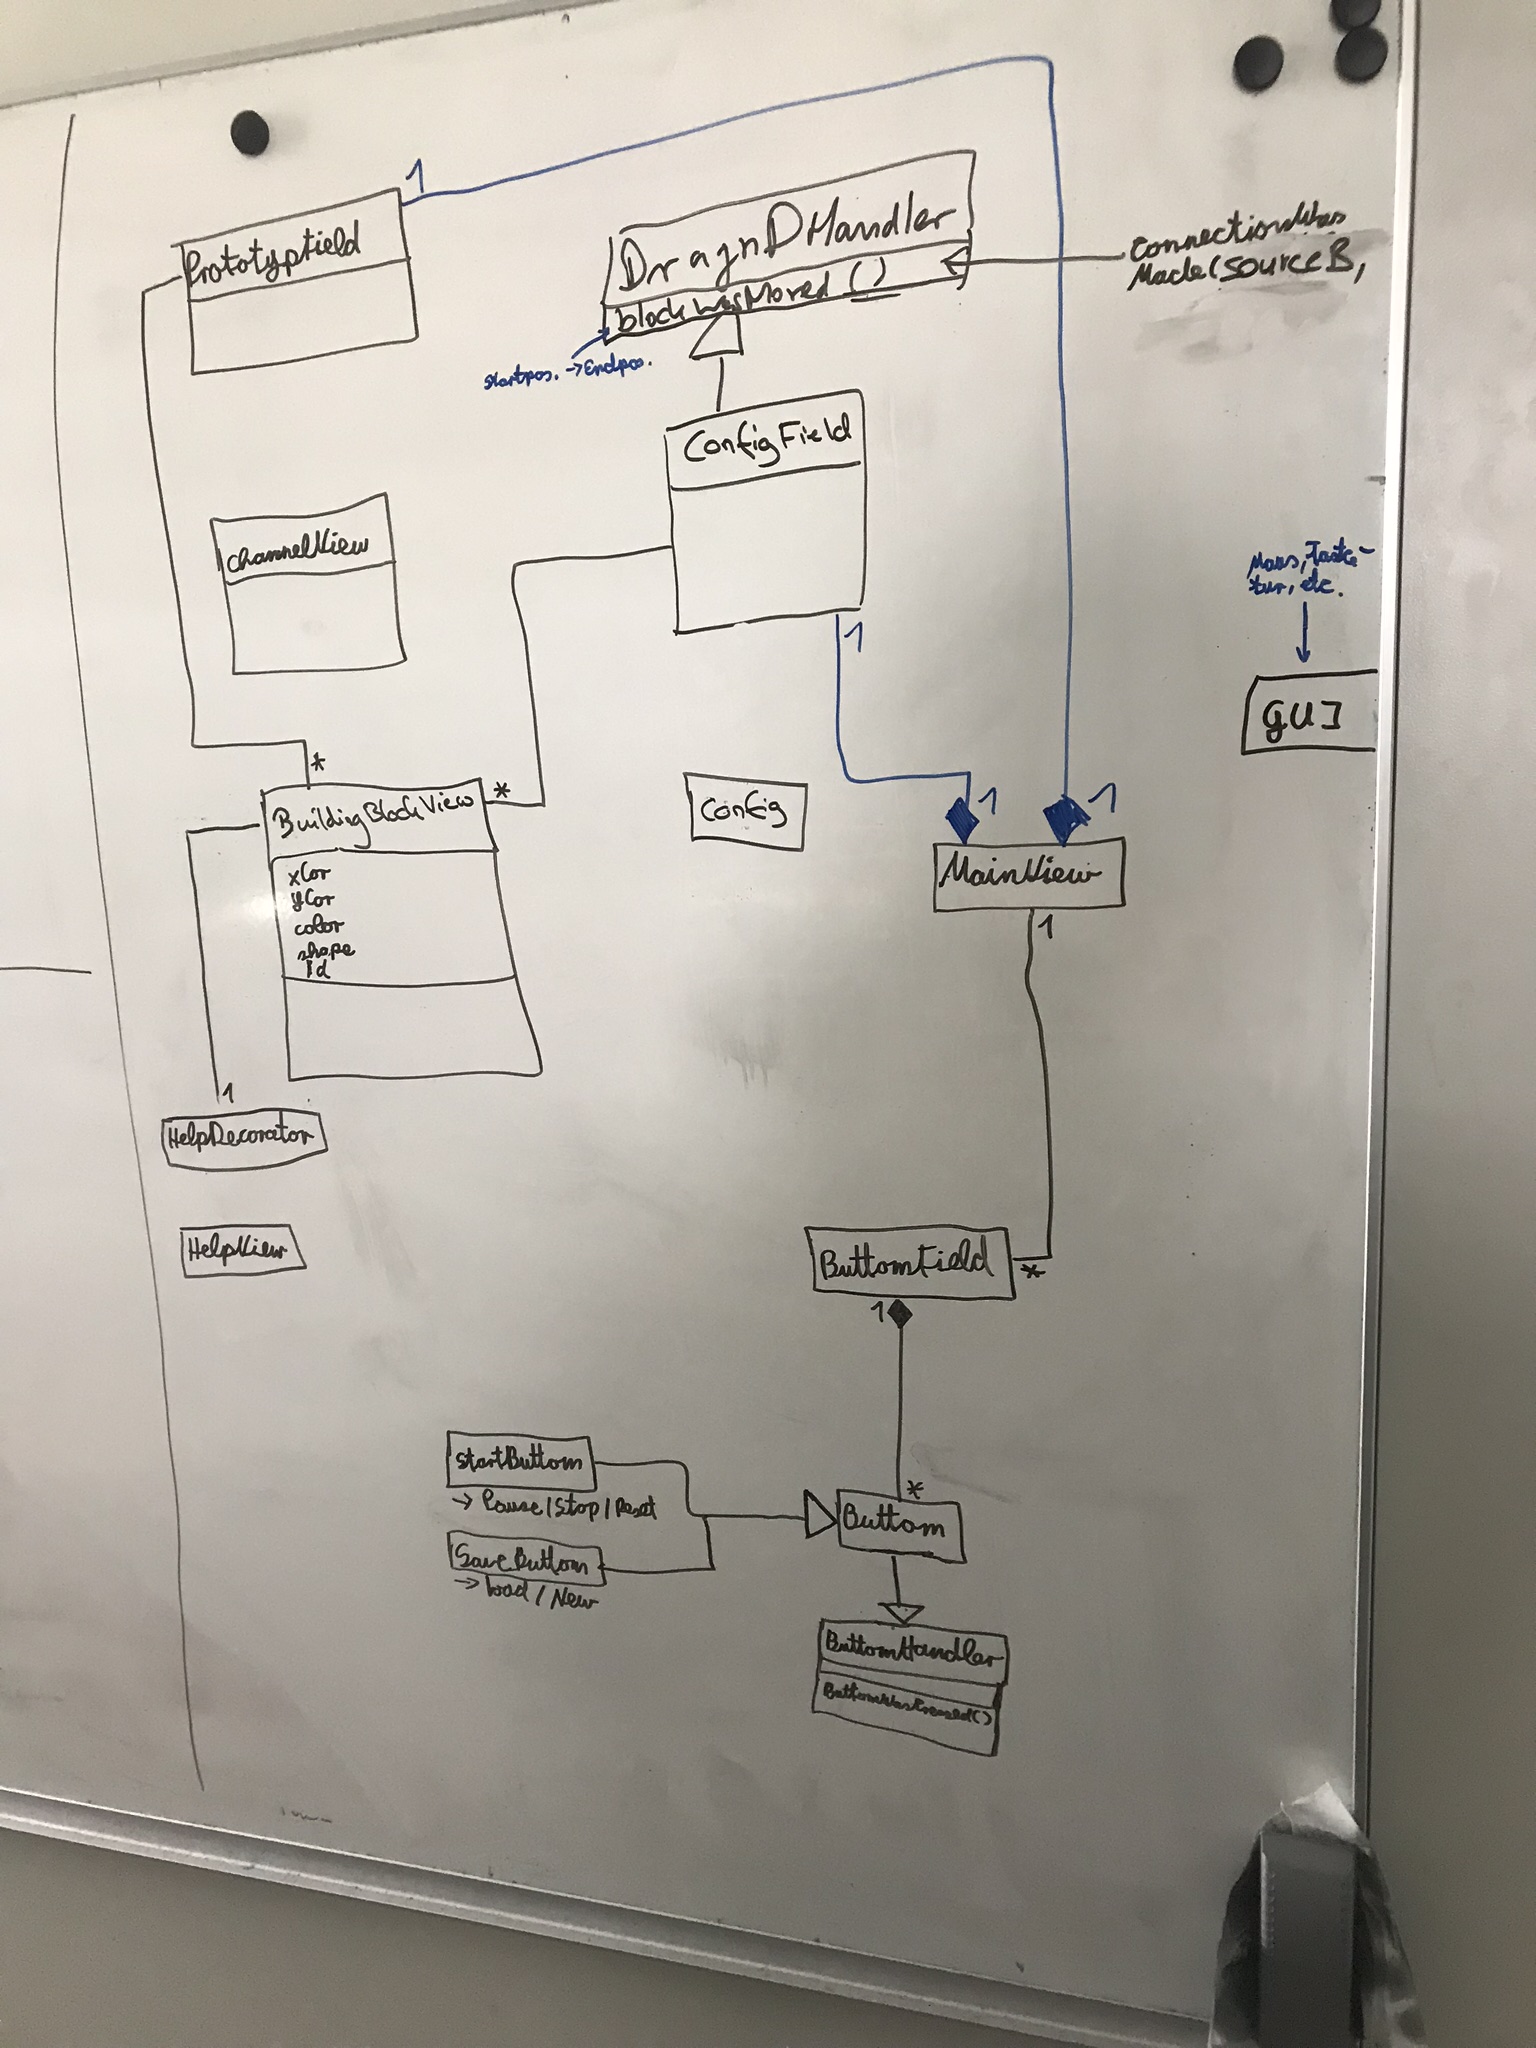 1
PrototypField
DragnDHandler
blockWasMoved ()
ConnectionWas
Made(SourceB,
Startpos. → Endpos.
ConfigField
channelView
1
Maus, Tasta-
tur, etc.
GUI
*
*
BuildingBlockView
xCor
yCor
color
shape
Id
Config
1
1
MainView
1
1
HelpDecorator
HelpView
ButtomField
*
1
startButtom
→ Pause/Stop/Reset
SaveButtom
→ load/New
*
Buttom
ButtomHandler
ButtomWasPressed()